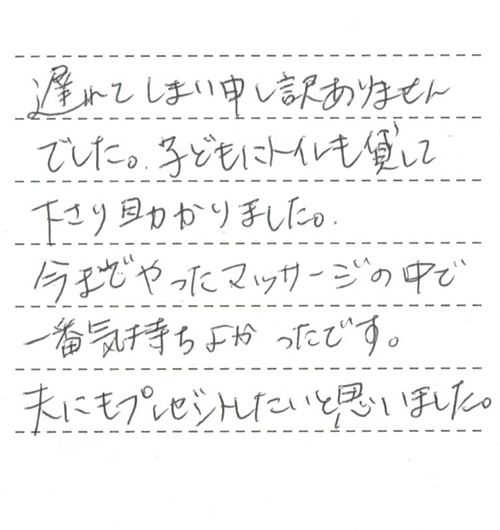 遅れてしまい申し訳ありません
でした。子どもにトイレも貸して
下さり助かりました。
今までやったマッサージの中で
一番気持ちよかったです。
夫にもプレゼントしたいと思いました。